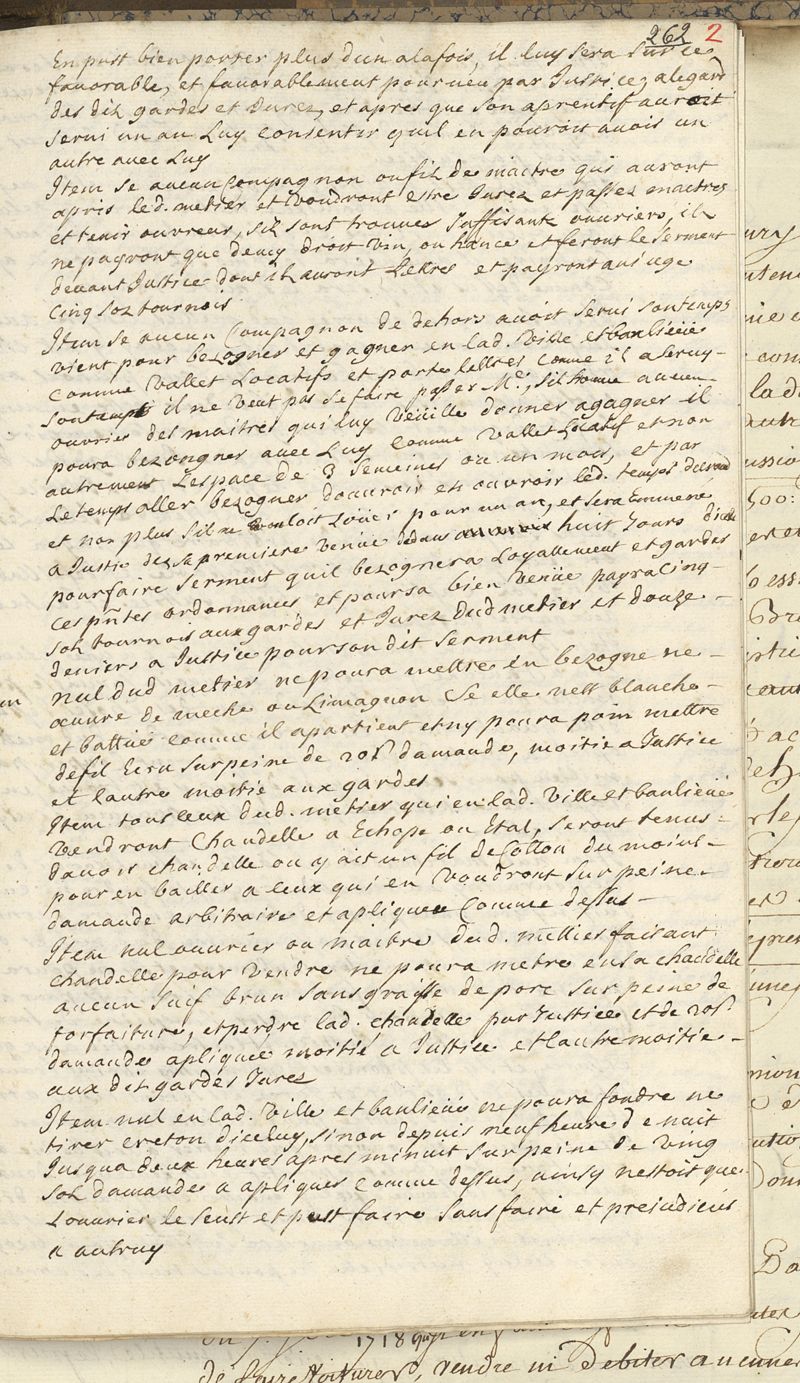 262 2
En pust bien porter plus dun alafois, il luy sera sur ce
favorable, et favorablement pourveu par Justice, alegard
des dits gardes et Jurez, et apres que son aprentif auroit
servi un an Luy consenter quil en pouroit avoir un
autre avec Luy
Item se aucun Compagnon ou filz de maitre qui auront
apris led. metier et voudront estre Jurez et passez maitres
et tenir ouvreur, silz sont trouvez suffisants ouvriers, ilz
ne payront que demy droit vin, ou hance et feront le Serment
devant Justice dont ilz auront Lettres et payront au siege
Cinq solz tournois
Item se aucun Compagnon de dehors avoit servi son temps
vient pour bezogner et gagner en lad. ville et banlieüe
comme vallet Locatifs et porte lettres comme il a servy
son temps il ne veut pas se faire passer Me, sil trouve aucun
ouvrier des maitres qui luy veüille donner a gagner il
poura bezongner avec Luy comme vallet Locatif et non
autrement Lespace de 3 semeines ou un mois, et par
Le temps aller bezogner douvroir en ouvroir led. temps durant
et non plus sil ne vouloit Loüer pour un an, et sera emmené
a Justice de sa premiere venüe dedans huit Jours dicelle
pour faire serment quil bezognera Loyallement et gardes
ces pñtes ordonnances et pour sa bien venüe payra Cinq
solz tournois aux gardes et Jurez Dud metier et douze
deniers a Justice pour son dit serment
nul dud metier ne poura mettre en bezogne ne
œuvre de meche ou Limagnon Se elle nest blanche
et battüe comme il apartient et ny poura poin mettre
de fil Ecru sur peine de 20s. damande, moitie a Justice
et lautre moitie aux gardes
Item tous ceux dud. metier qui en lad. ville et banlieüe
vendront Chandelle a Echope ou Etal, seront tenus
davoir chandelle ou y ait un fil de Cotton du moins
pour en bailler a ceux qui en voudront sur peine
damande arbitraire et apliquee Comme dessus
Item nul ouvrier ou maitre dud. mettier faisant
chandelle pour vendre ne poura metre en sa chandelle
aucun suif brun sans graisse de porc sur peine de
forfaiture, et perdre lad. chandelle par Justice et de 20s.
damande apliquee moitié a Justice et lautre moitie
aux dit gardes Jurez
Item nul en lad. ville et banlieüe ne poura fondre ne
tirer creton diceluy, sinon depuis neuf heure de nuit
Jusqua deux heures apres minuit sur peine de vingt
solz damande a apliquer comme dessus, ainsy nestoit que
Louvrier le seust et pust faire sans faire et prejudicier
a autruy
1718
de faire voiturer, vendre ni debiter aucunne